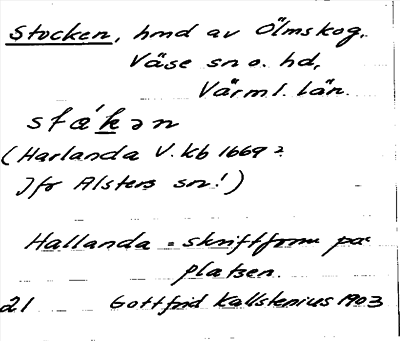 Stocken, hmd av Ölmskog,
Väse sn o. hd,
Värml. län.
stákən
(Harlanda V. kb 1669?
Jfr Alsters sn!)
Hallanda = skriftform på
platsen.
21 Gottfrid Kallstenius 1903